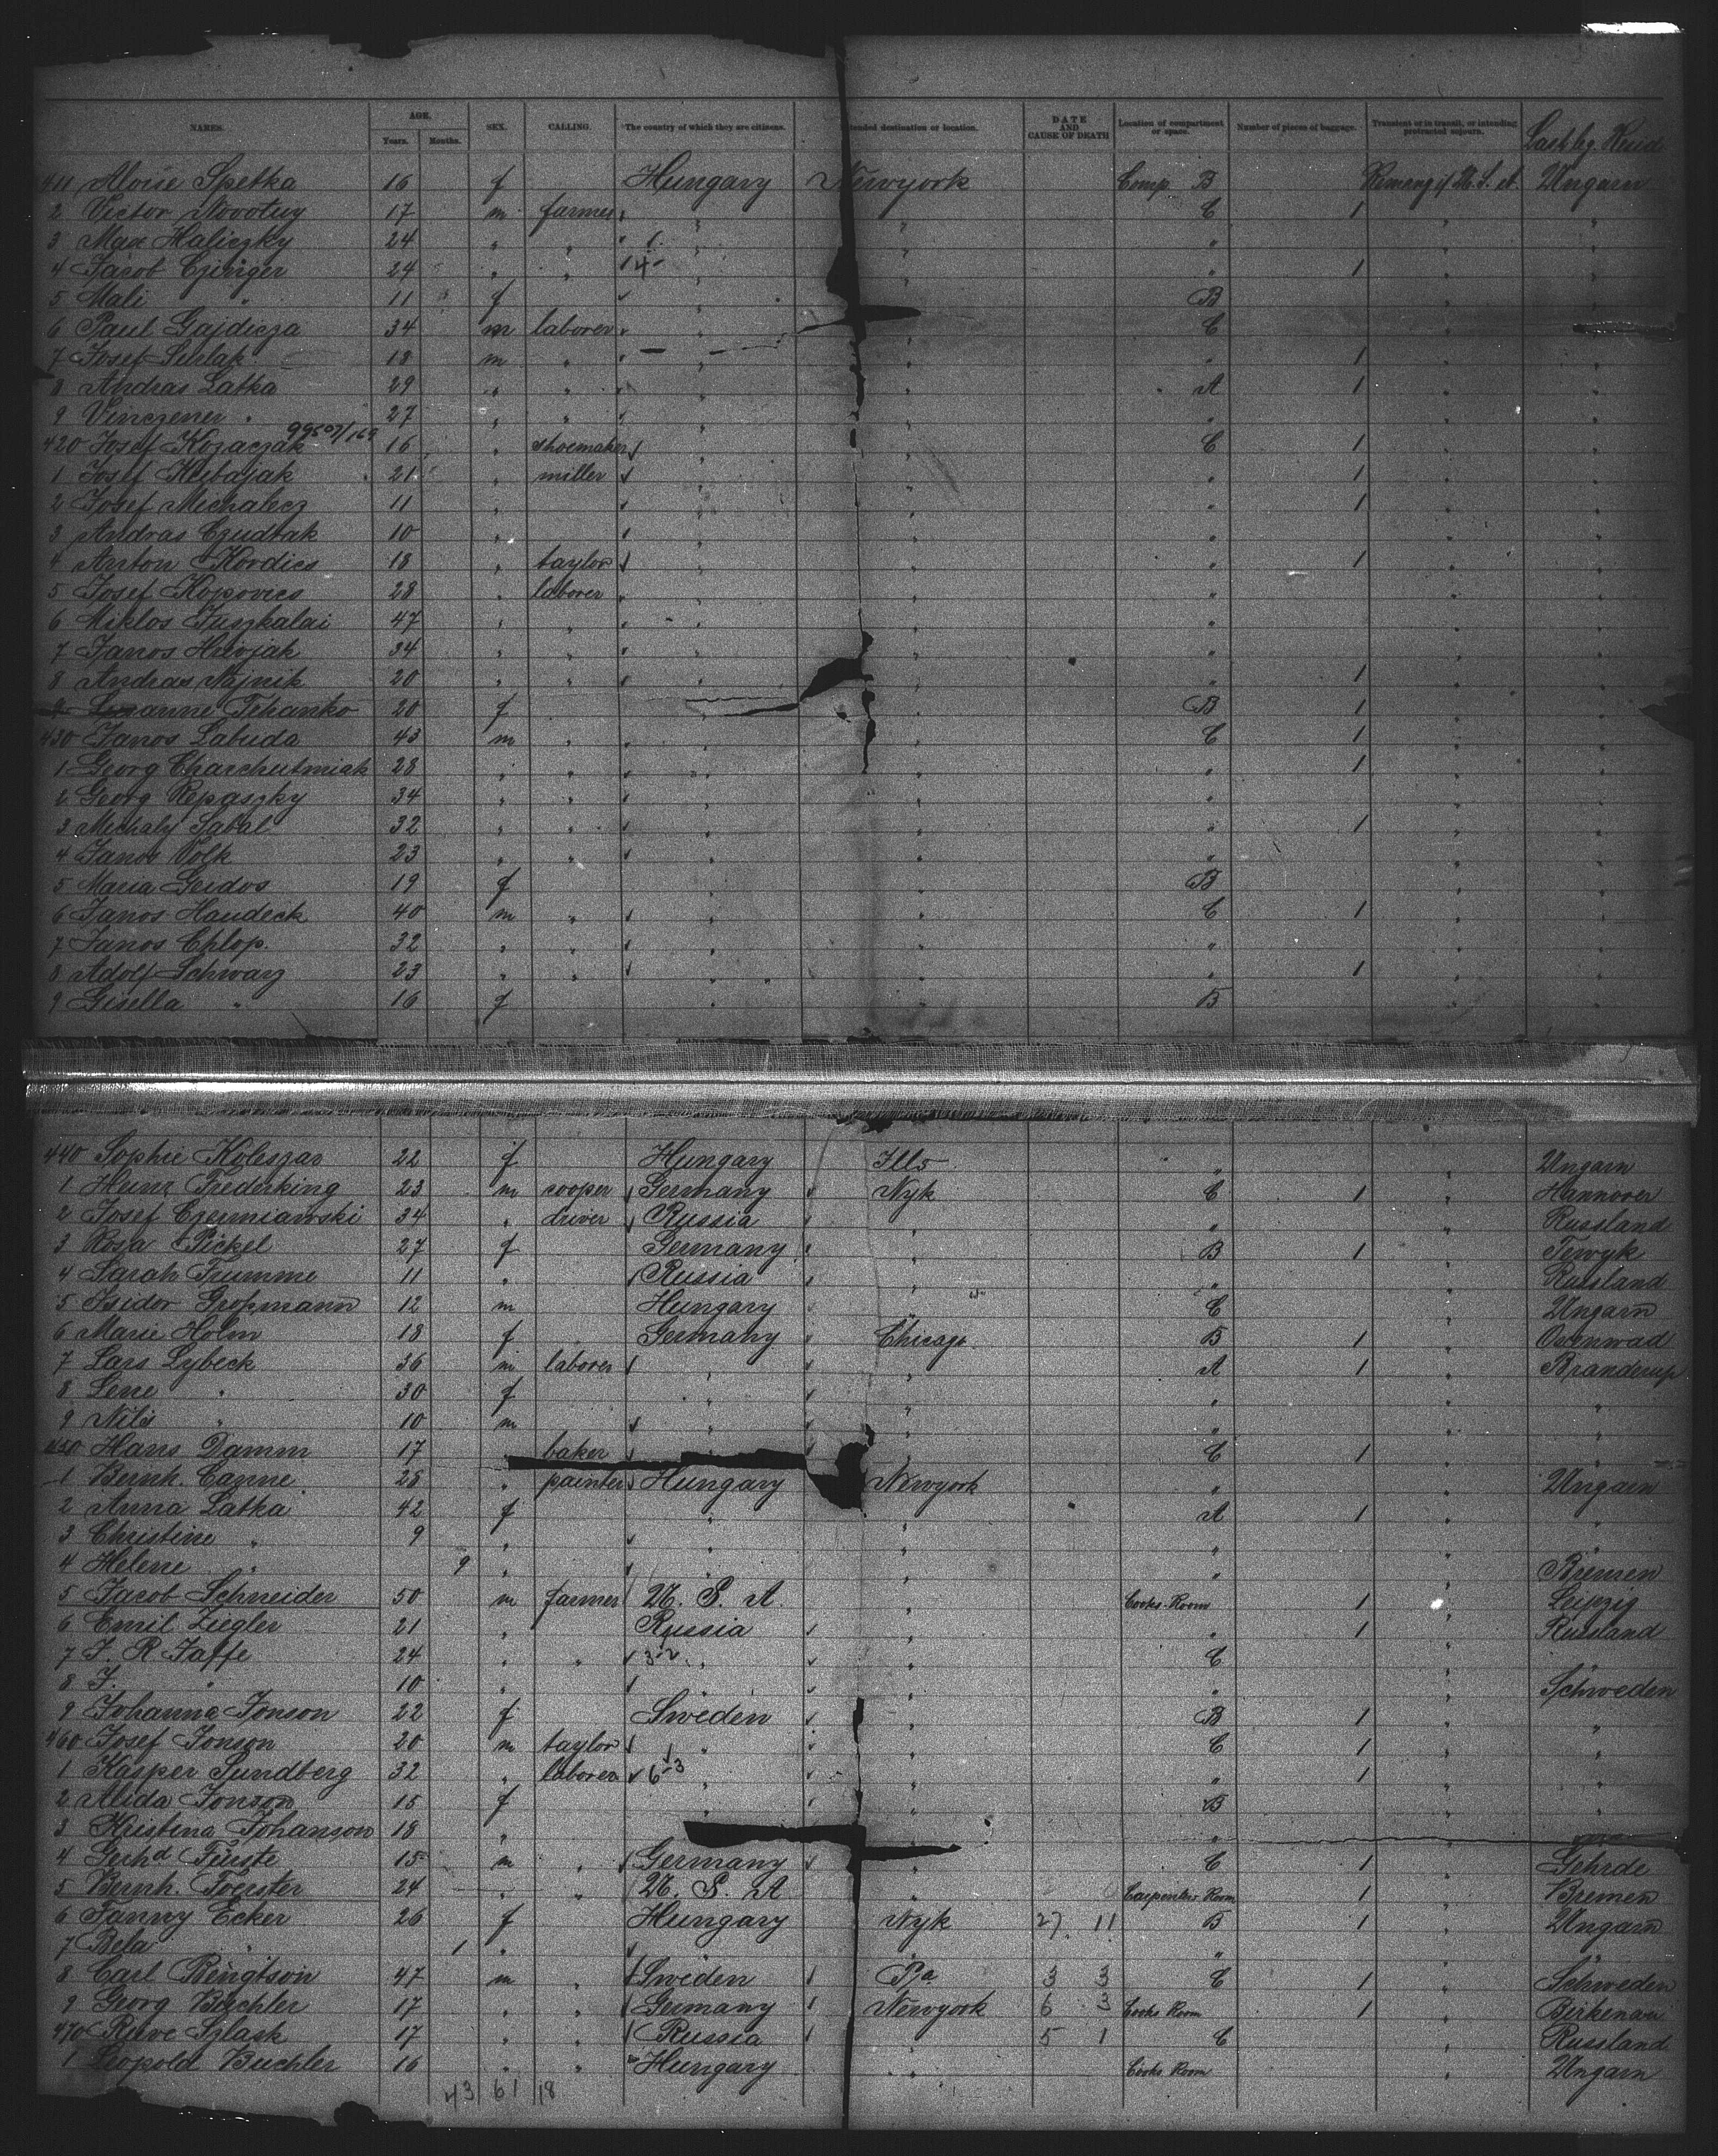 NAMES. AGE. Years. Months. SEX. CALLING. The country of which they are citizens. destination or location. DATE AND CAUSE OF DEATH Location of compartment or space. Number of pieces of baggage. Transient or in transit, or intending protracted sojourn.
411 Aloise Spetka 16 f Hungary Newyork Comp. B U. S. A Ungarn
2 Victor Novotny 17 m farmer " " C 1 " "
3 Max Haliczky 24 " " " " " " "
4 Jacob Czinger 24 " " " " " 1 " "
5 Mali " 11 f " " B " "
6 Paul Gajdicza 34 m laborer " " C " "
7 Josef 18 m " " " " 1 " "
8 Andras Latka 29 " " " " A 1 " "
9 " 27 " " " " " " "
420 Josef Kozaczak 16 " shoemaker " " C 1 " "
1 Josef 21 " miller " " " 1 " "
2 Josef Michalecz 11 " " " " 1 " "
3 Andras Czudtak 10 " " " " " "
4 Anton Kordics 18 " taylor " " " 1 " "
5 Josef Kopovics 28 " laborer " " " " "
6 Miklos Juszkalai 47 " " " " " " "
7 Janos 34 " " " " " " "
8 Andras Najnik 20 " " " " " 1 " "
9 Susanne Tehanko 20 f " " B 1 " "
430 Janos Labuda 43 m " " " C 1 " "
1 Georg Charchutmiak 28 " " " " " 1 " "
2 Georg Repaszky 34 " " " " " " "
3 Mechaly Sabal 32 " " " " " 1 " "
4 Janos Volk 23 " " " " " " "
5 Maria Geidos 19 f " " B " "
6 Janos Haudeck 40 m " " " C 1 " "
7 Janos Chlop. 32 " " " " " " "
8 Adolf Schwarz 23 " " " " " 1 " "
9 Gisella " 16 f " " B " "
440 Sophie Koleszar 22 f Hungary Ills " " Ungarn
1 Heinr Frederking 23 m cooper Germany Nyk C 1 " Hannover
2 Josef Czerniawski 34 " driver Russia " " " Russland
3 Rosa Pickel 27 f Germany " B 1 "
4 Sarah Trumme 11 " Russia " " " Russland
5 Isidor Großmann 12 m Hungary " C " Ungarn
6 Marie Holm 18 f Germany Chicago B 1 "
7 Lars Lybeck 36 m laborer " " A 1 " Branderup
8 Lene " 30 f " " " " "
9 Nils " 10 m " " " " "
450 Hans Damm 17 " baker " " C 1 " "
1 Bernh. Canne 25 " painter Hungary Newyork " " Ungarn
2 Anna Latka 42 f " " A 1 " "
3 Christine " 9 " " " " " "
4 Helene " 9 " " " " " Bremen
5 Jacob Schneider 50 m farmer U. S. A. " Cooks-Room 1 " Leipzig
6 Emil Ziegler 21 " Russia " " 1 " Russland
7 J. R Jaffe 24 " " " " C " "
8 J. " 10 " " " " " Schweden
9 Johanna Jonson 22 f Sweden " B 1 " "
460 Josef Jonson 20 m taylor " " C 1 " "
1 Kasper Sundberg 32 " laborer " " " 1 " "
2 Alida Jonson 15 f " " B " "
3 Kristina Johanson 18 " " " " "
4 Gerhd Fürste 15 m " Germany " C 1 " Gehrde
5 Bernh. Foerster 24 " " U. S. A " Carpenters Room 1 " Bremen
6 Fanny Ecker 26 f Hungary Nyk 27 11 B 1 " Ungarn
7 Bela " 1 " " " " " "
8 Carl Bengtson 47 m " Sweden Pa 3 3 C 1 " Schweden
9 Georg Büchler 17 " " Germany Newyork 6 3 Cooks Room 1 " Birkenau
470 Ruwe Szlask 17 " " Russia " 5 1 C " Russland
1 Leopold Buchler 16 " " Hungary " Cooks Room " Ungarn
43 61 18